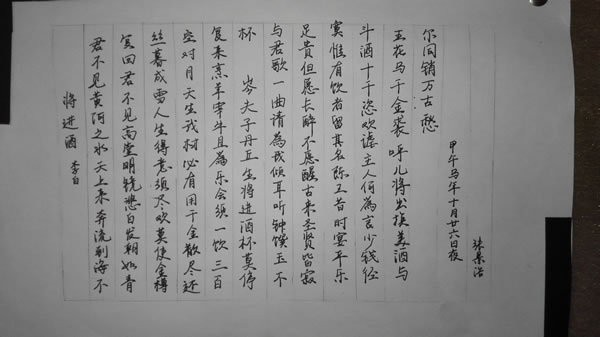 将进酒 李白
君不见黄河之水天上来奔流到海不
复回君不见高堂明镜悲白发朝如青
丝暮成雪人生得意须尽欢莫使金樽
空对月天生我材必有用千金散尽还
复来烹羊宰牛且為乐会须一饮三百
杯 岑夫子丹丘生将进酒杯莫停
与君歌一曲请為我倾耳听钟馔玉不
足贵但愿长醉不愿醒古来圣贤皆寂
寞惟有饮者留其名陈王昔时宴平乐
斗酒十千恣欢谑主人何為言少钱径
五花马千金裘呼儿将出换美酒与
尔同销万古愁
甲午马年十月廿六日夜